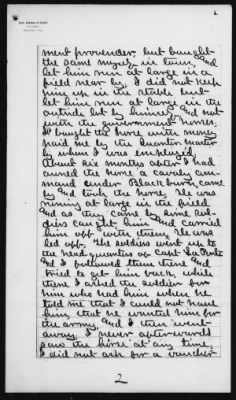 ment provender, but bought
the same myself in town, and
let him run at large in a
field near by. I did not keep
him up in the stable but
let him run at large in the
outside lot by himself and not
with the government horses.
I bought the horse with money
paid me by the Quarter Master
by whom I was employed.
About six months after I had
owned the horse a cavalry com-
mand under Blackburn came
by and took the horse. He was
running at large in the field
and as they came by some sol-
diers caught him and carried
him off with them. He was
led off. The soldiers went up to
the head quarters of Capt
and I followed them there and
tried to get him back, while
there I asked the soldier for
him who had him when he
told me that I could not have
him, that he wanted him for
the army, and I then went
away. I never afterwards
saw the horse at any time.
I did not ask for a voucher
2